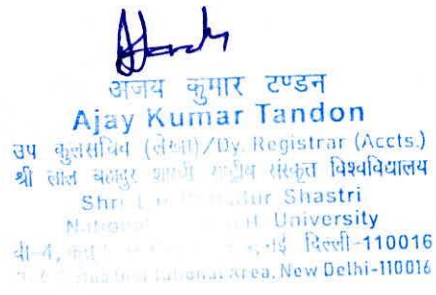 अजय कुमार टण्डन
Ajay Kumar Tandon
उप कुलसचिव (लेखा)/Dy. Registrar (Accts.)
श्री लाल बहादुर शास्त्री राष्ट्रीय संस्कृत विश्वविद्यालय
Shri Shastri
National University
बी-4, नई दिल्ली-110016
Area, New Delhi-110016